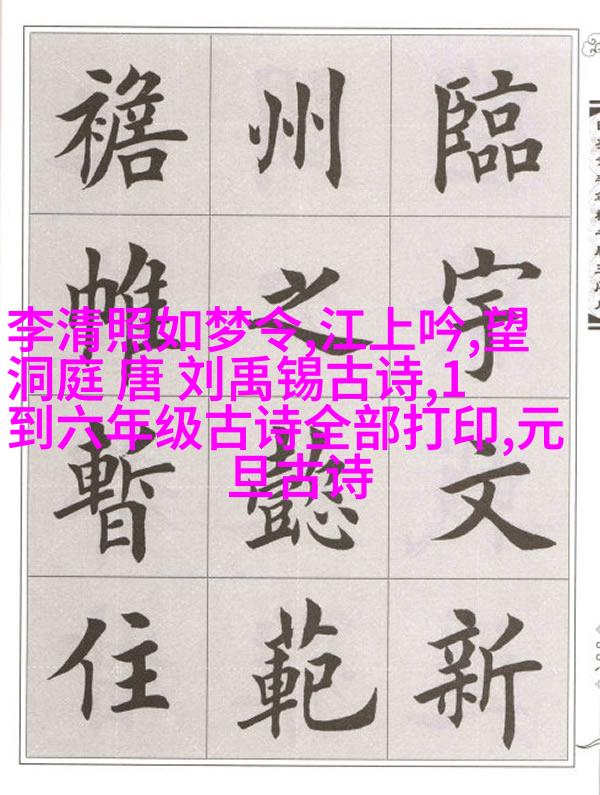 臨宇文新
州之懿範
襜帷暫住
李清照如梦令,江上吟,望
洞庭 唐 刘禹锡古诗,1
到六年级古诗全部打印,元
旦古诗